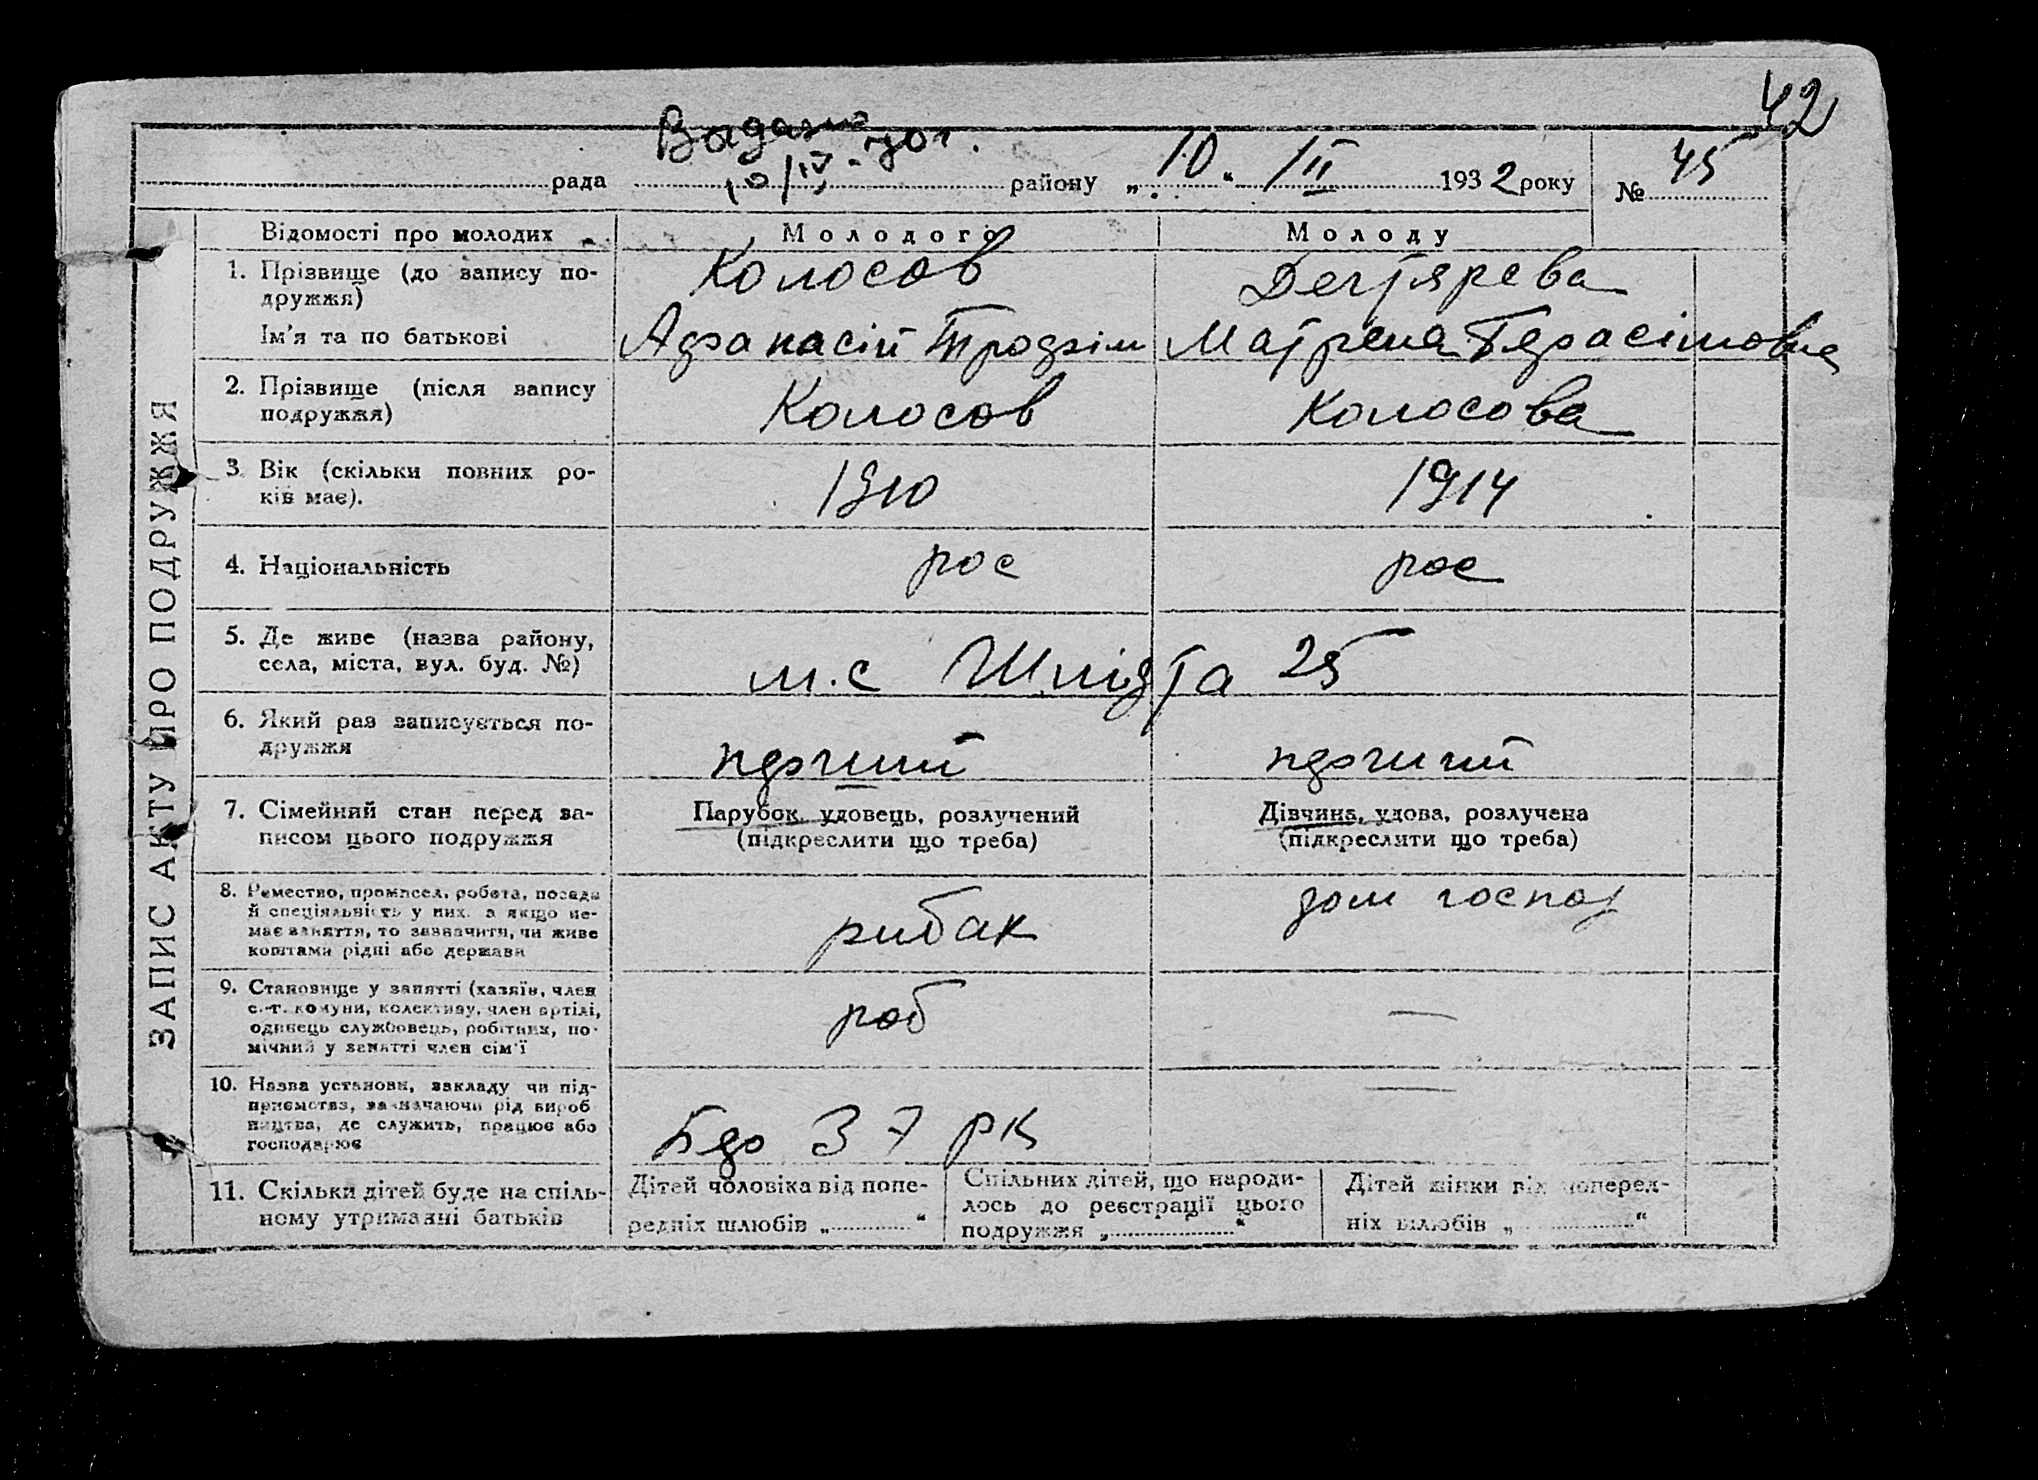 42
рада 10/IV району „10“ III 1932 року № 45
ЗАПИС АКТУ ПРО ПОДРУЖЖЯ
Відомості про молодих Молодого Молоду
1. Прізвище (до запису по- Колосов Дегтярева
дружжя)
Ім'я та по батькові Афанасій Матрена Герасімовна
2. Прізвище (після запису Колосов Колосова
подружжя)
3. Вік (скільки повних ро- 1910 1914
ків має).
4. Національність рос рос
5. Де живе (назва району, м.с Шмідта 25
села, міста, вул. буд. №)
6. Який раз записується по-
дружжя перший перший
7. Сімейний стан перед за- Парубок, удовець, розлучений Дівчина, удова, розлучена
писом цього подружжя (підкреслити що треба) (підкреслити що треба)
8. Ремество, промисел, робота, посада дом господ
й спеціяльність у них, а якщо не-
має заняття, то зазначити, чи живе рибак
коштами рідні або держави
9. Становище у занятті (хазяїн, член
с.-г. комуни, колективу, член артілі, роб —
одинець службовець, робітник, по-
мічний у занятті член сім'ї
10. Назва установи, закладу чи під- —
приємства, зазначаючи рід вироб
ництва, де служить, працює або
господарює 37 РК
11. Скільки дітей буде на спіль- Дітей чоловіка від попе- Спільних дітей, що народи- Дітей жінки від поперед-
ному утриманні батьків редніх шлюбів „ “ лось до реєстрації цього ніх шлюбів „ “
подружжя „ “